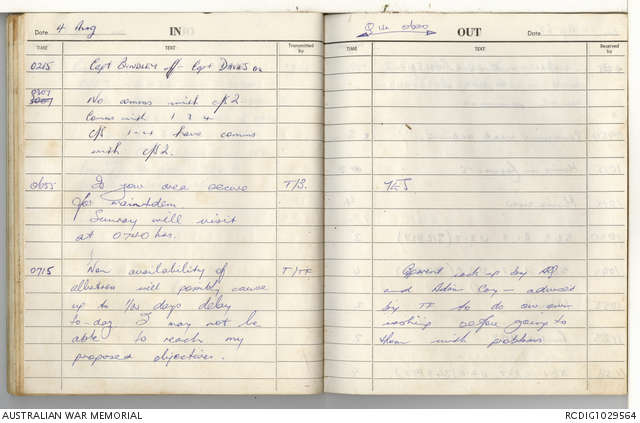 Date 4 Aug IN
TIME TEXT Transmitted by
0215 Capt BINDLEY off - Capt DAVIES on
0307
No comms with c/s 2
Comms with 1 3 4
c/s 1-4 have comms
with c/s 2.
0655 Is your area secure T/3.
for maintdem.
Sunray will visit
at 0740 hrs.
0715 Non availability of T/TF
albatross will possibly cause
up to 1/2 days delay
to-day I may not be
able to reach my
proposed objectives.
OUT Date
TIME TEXT Received by
YES
Apparent cock up by
and Admin Coy - advised
by TF to do our own
washing before going to
them with problems
AUSTRALIAN WAR MEMORIAL RCDIG1029564